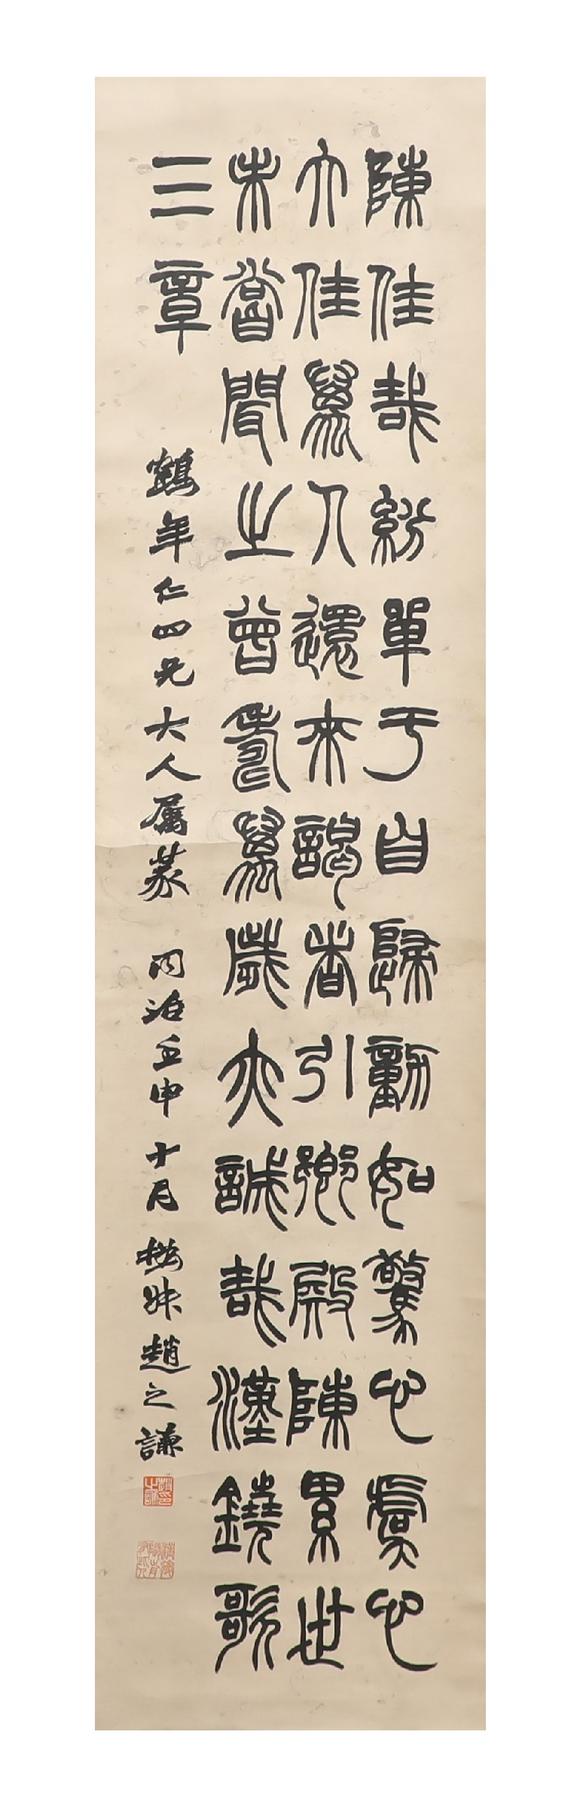 陳佳哉紛單于自歸動如驚心虞心
大佳萬人還來謁者引鄉殿陳累世
未嘗聞之曾壽萬歲亦誠哉漢鐃歌
三章
鶴年仁四兄大人屬篆 同治壬申十月 撝叔趙之謙